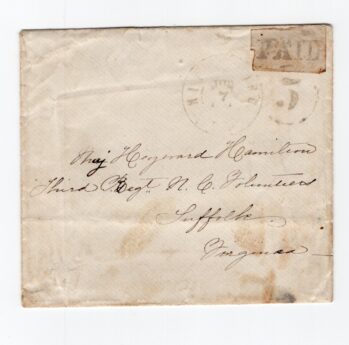 PAID
5
JUN
7
Maj Haywood Hamilton
Third Regt N. C. Volunteers
Suffolk
Virginia